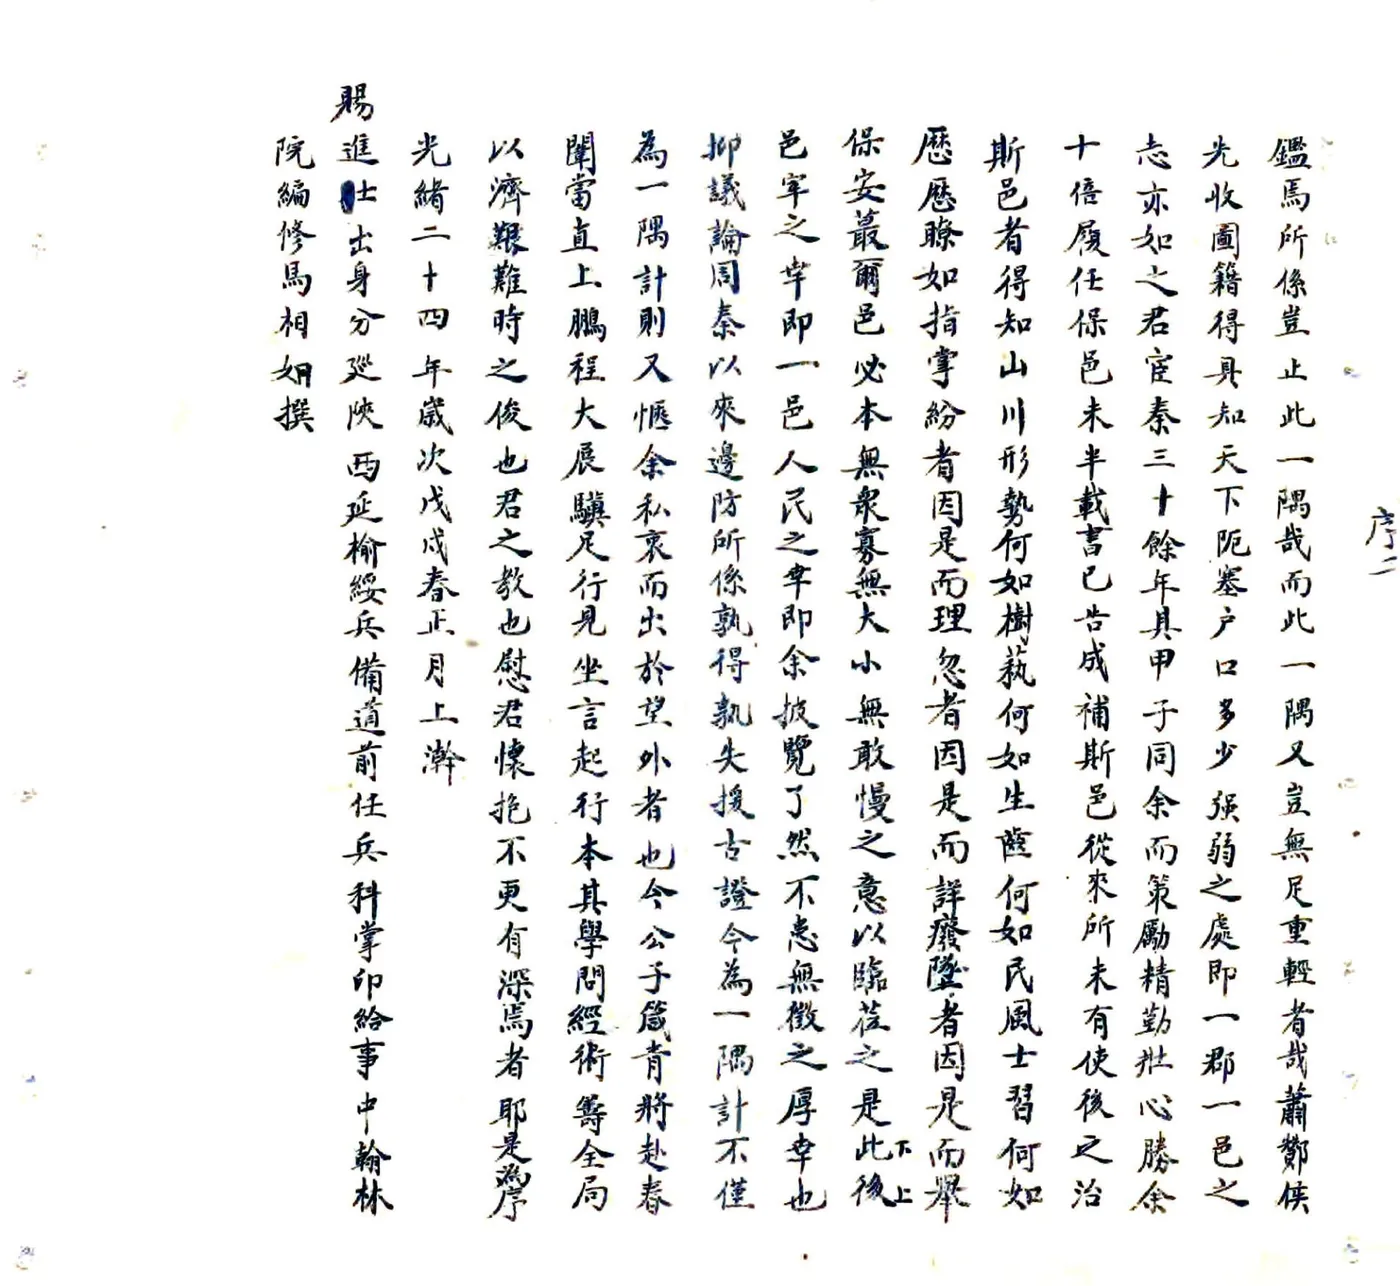 序二
鑑焉所係豈止此一隅哉而此一隅又豈無足重輕者哉蕭酇侯
先收圖籍得具知天下阨塞户口多少强弱之處即一郡一邑之
志亦如之君宦秦三十餘年具甲子同余而策勵精勤壯心勝余
十倍履任保邑未半載書已告成補斯邑從來所未有使後之治
斯邑者得知山川形勢何如樹藝何如生齒何如民風士習何如
歷歷瞭如指掌紛者因是而理忽者因是而詳癈墜者因是而舉
保安蕞爾邑必本無衆寡無大小無敢慢之意以臨莅之是此後
下上
邑宰之幸即一邑人民之幸即余披覽了然不患無徵之厚幸也
抑議論周秦以來邊防所係孰得孰失援古證今為一隅計不僅
為一隅計則又愜余私衷而出於望外者也今公子箴青將赴春
闈當直上鵬程大展驥足行見坐言起行本其學問經術籌全局
以濟艱難時之俊也君之教也慰君懷抱不更有深焉者耶是為序
光緒二十四年歲次戊戌春正月上澣
賜進士出身分廵陝西延榆綏兵備道前任兵科掌印給事中翰林
院編修馬相如撰